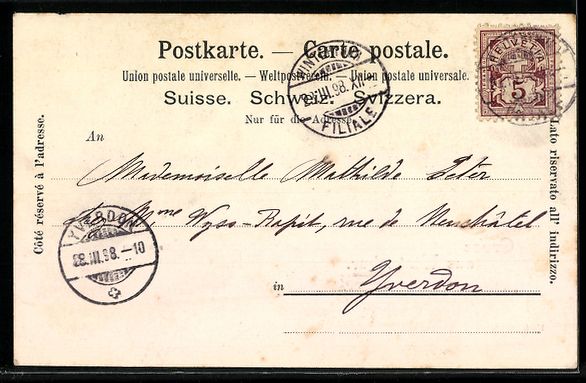 Postkarte. — Carte postale.
Union postale universelle. — Weltpostverein. — Union postale universale.
Suisse. Schweiz. Svizzera.
Nur für die Adresse.
Côté réservé à l'adresse.
Lato riservato all' indirizzo.
HELVETIA
5
WINTERTHUR
28.III.98.XII
FILIALE
An
Mademoiselle Mathilde Peter
Mme Wyss-Rapit, rue de Neuchâtel
in Yverdon
YVERDON
28.III.98.-10